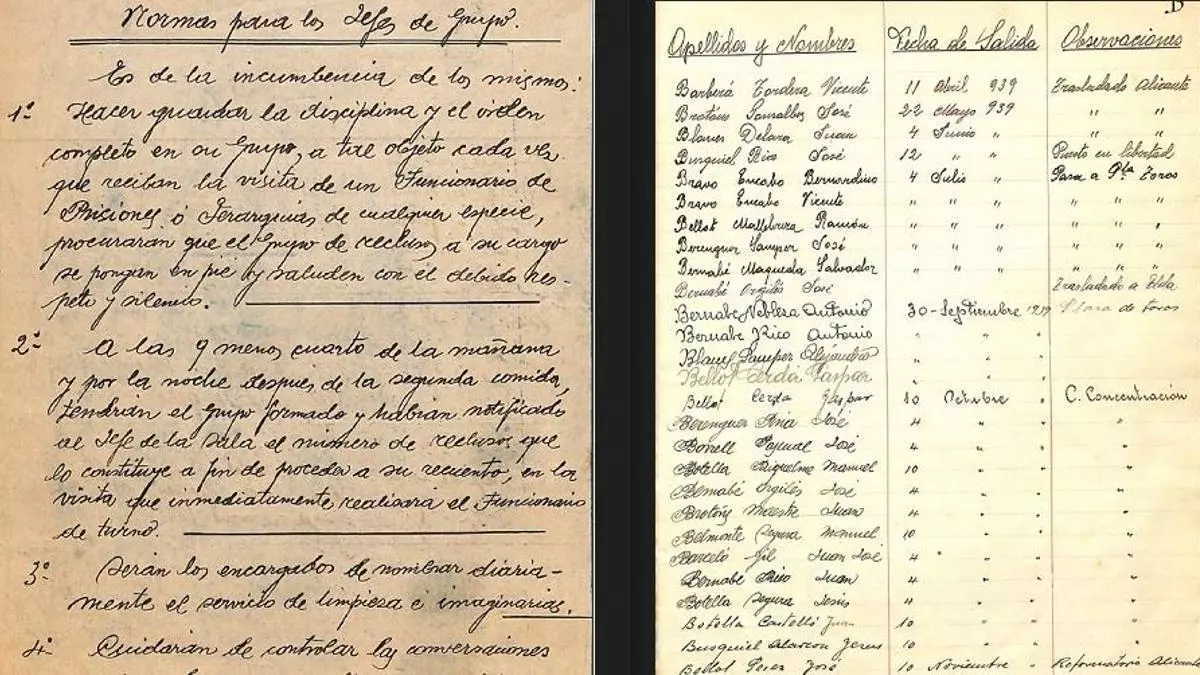 Normas para los Jefes de Grupo.
Es de la incumbencia de los mismos:
1º Hacer guardar la disciplina y el orden
completo en su Grupo, a tal objeto cada vez
que reciban la visita de un Funcionario de
Prisiones ó Jerarquias de cualquier especie,
procurarán que el Grupo de reclusos a su cargo
se pongan en pié y saluden con el debido res-
peto y silencio.
2º A las 9 menos cuarto de la mañana
y por la noche después de la segunda comida,
tendrán el Grupo formado y habrán notificado
al Jefe de la Sala el número de reclusos que
lo constituye a fin de proceder a su recuento, en la
visita que inmediatamente realisará el Funcionario
de turno.
3º Serán los encargados de nombrar diaria-
mente el servicio de limpiesa é imaginarias.
4º Cuidarán de controlar las conversaciones
B
Apellidos y Nombres Fecha de Salida Observaciones
Barberá Tordera Vicente 11 Abril 939 Trasladado Alicante
Brotons Gonsalbes José 22 Mayo 939 " "
Blanes Delara Juan 4 Junio " " "
Busquiel Rico José 12 " " Puesto en libertad
Bravo Encabo Bernardino 4 Julio " Pasa a Pza Toros
Bravo Encabo Vicente " " " " " "
Bellot Ramón " " " " " "
Berenguer Samper José " " " " " "
Bernabé Maqueda Salvador " " " " " "
Bernabé Orgilés José Trasladado a Elda
Bernabe Antonio 30 - Septiembre 1939 Plasa de toros
Bernabe Rico Antonio " " "
Blanes Samper Alejandro " " "
Bellot Cerda Gaspar " " "
Bellot Cerda Gaspar 10 Octubre " C. Concentración
Berenguer Piña José 4 " " "
Bonell Pascual José 4 " " "
Botella Riquelme Manuel 10 " " "
Bernabé Orgilés José 4 " " "
Brotons Maestre Juan 4 " " "
Belmonte Segura Manuel 10 " " "
Barceló Gil Juan José 4 " " "
Bernabé Rico Juan 4 " " "
Botella Segura Jesús 4 " " "
Botella Castelló Juan 10 " " "
Busquiel Alarcon Jesus 10 " " "
Bellot Peres José 10 Noviembre " Reformatorio Alicante